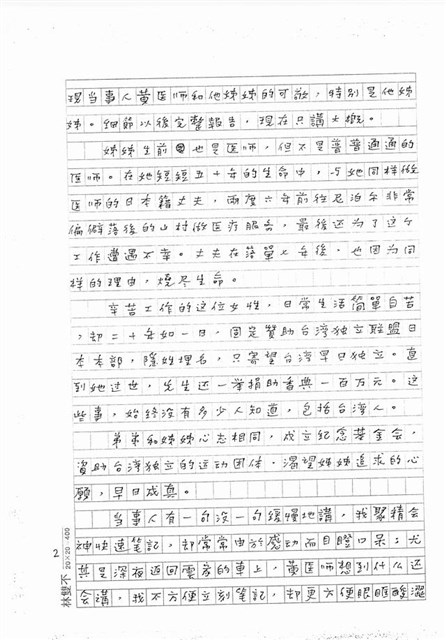 現当事人黄医师和他姊姊的可敬，特別是他姊
姊。細節以後完整報告，現在只講大概。
姊姊生前也是医师，但不是普普通通的
医师。在她短短五十年的生命中，与她同样做
医师的日本籍丈夫，兩度六年前往尼泊尔非常
偏僻落後的山村做医疗服务，最後还为了这个
工作遭遇不幸。丈夫在落單又年後，也因为同
样的理由，燒尽生命。
辛苦工作的这位女性，日常生活简單自苦
，却二十年如一日，固定赞助台湾独立联盟日
本本部，隱姓埋名，只寄望台湾早日独立。直
到她过世，先生还一举捐助香典一百万元。这
些事，始终沒有多少人知道，包括台湾人。
弟弟和姊姊心志相同，成立纪念基金会，
资助台湾独立的运动团体，渴望姊姊追求的心
願，早日成真。
当事人有一句沒一句缓慢地講，我聚精会
神快速笔記，却常常由於感动而目瞪口呆；尤
其是深夜返回雲彦的車上，黄医师想到什么还
会講，我不方便立刻笔記，却更方便眼眶
2
林雙不 20×20=400